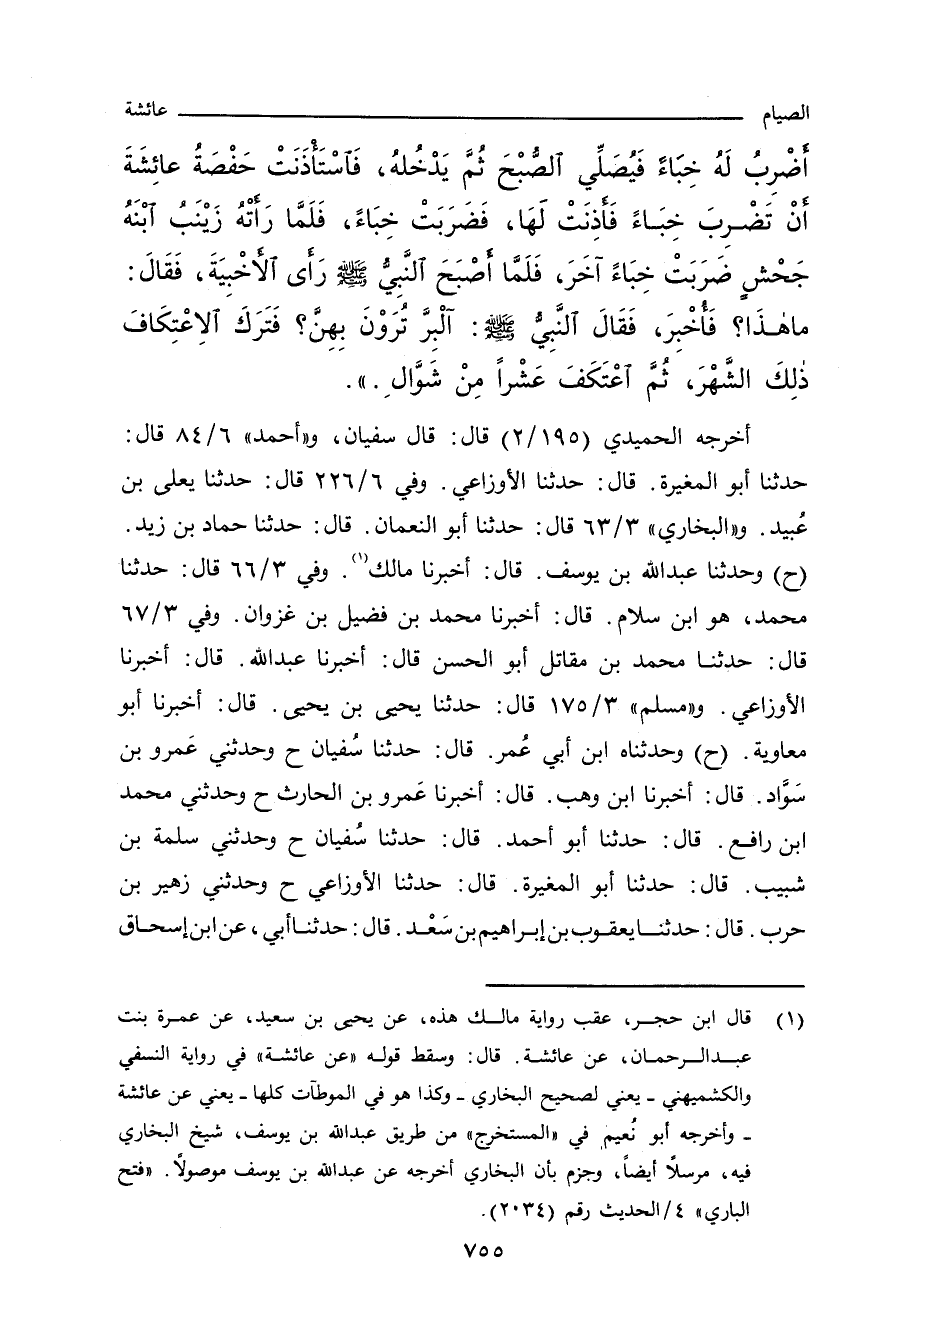 الصيام عائشة
أَضْرِبُ لَهُ خِبَاءً فَيُصَلِّي الصُّبْحَ ثُمَّ يَدْخُلُهُ، فَاسْتَأْذَنَتْ حَفْصَةُ عائِشَةَ
أَنْ تَضْرِبَ خِبَاءً فَأَذِنَتْ لَهَا، فَضَرَبَتْ خِبَاءً، فَلَمَّا رَأَتْهُ زَيْنَبُ ابْنَهُ
جَحْشٍ ضَرَبَتْ خِبَاءً آخَرَ، فَلَمَّا أَصْبَحَ النَّبِيُّ ﷺ رَأَى الأَخْبِيَةَ، فَقَالَ:
ماهٰذَا؟ فَأُخْبِرَ، فَقَالَ النَّبِيُّ ﷺ: آلْبِرَّ تُرَوْنَ بِهِنَّ؟ فَتَرَكَ الِاعْتِكَافَ
ذٰلِكَ الشَّهْرَ، ثُمَّ اعْتَكَفَ عَشْراً مِنْ شَوَّالٍ.».
أخرجه الحميدي (٢/١٩٥) قال: قال سفيان، و«أحمد» ٨٤/٦ قال:
حدثنا أبو المغيرة. قال: حدثنا الأوزاعي. وفي ٢٢٦/٦ قال: حدثنا يعلى بن
عُبيد. و«البخاري» ٦٣/٣ قال: حدثنا أبو النعمان. قال: حدثنا حماد بن زيد.
(ح) وحدثنا عبدالله بن يوسف. قال: أخبرنا مالك(١). وفي ٦٦/٣ قال: حدثنا
محمد، هو ابن سلام. قال: أخبرنا محمد بن فضيل بن غزوان. وفي ٦٧/٣
قال: حدثنا محمد بن مقاتل أبو الحسن قال: أخبرنا عبدالله. قال: أخبرنا
الأوزاعي. و«مسلم» ١٧٥/٣ قال: حدثنا يحيى بن يحيى. قال: أخبرنا أبو
معاوية. (ح) وحدثناه ابن أبي عُمر. قال: حدثنا سُفيان ح وحدثني عَمرو بن
سَوَّاد. قال: أخبرنا ابن وهب. قال: أخبرنا عَمرو بن الحارث ح وحدثني محمد
ابن رافع. قال: حدثنا أبو أحمد. قال: حدثنا سُفيان ح وحدثني سلمة بن
شبيب. قال: حدثنا أبو المغيرة. قال: حدثنا الأوزاعي ح وحدثني زهير بن
حرب. قال: حدثنا يعقوب بن إبراهيم بن سَعْد. قال: حدثنا أبي، عن ابن إسحاق
(١) قال ابن حجر، عقب رواية مالك هذه، عن يحيى بن سعيد، عن عمرة بنت
عبدالرحمان، عن عائشة. قال: وسقط قوله «عن عائشة» في رواية النسفي
والكشميهني ـ يعني لصحيح البخاري ـ وكذا هو في الموطآت كلها ـ يعني عن عائشة
ـ وأخرجه أبو نُعيم في «المستخرج» من طريق عبدالله بن يوسف، شيخ البخاري
فيه، مرسلاً أيضاً، وجزم بأن البخاري أخرجه عن عبدالله بن يوسف موصولاً. «فتح
الباري» ٤/الحديث رقم (٢٠٣٤).
٧٥٥